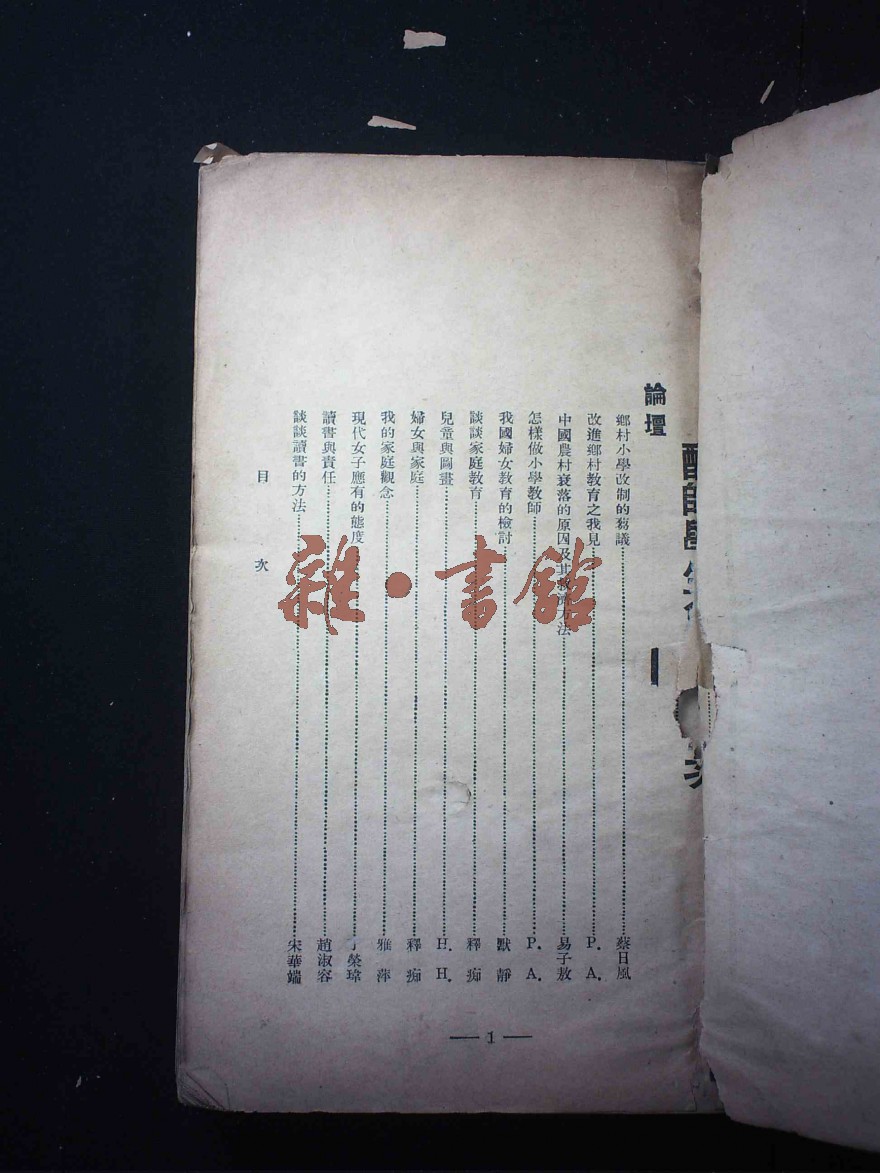 論壇
鄉村小學改制的芻議 蔡日風
改進鄉村教育之我見 P. A.
中國農村衰落的原因及其救濟方法 易子敖
怎樣做小學教師 P. A.
我國婦女教育的檢討 默靜
談談家庭教育 釋痴
兒童與圖畫 H. H.
婦女與家庭 釋痴
我的家庭觀念 雅萍
現代女子應有的態度 榮瑋
讀書與責任 趙淑容
談談讀書的方法 宋華端
目次
— 1 —
雜·書館